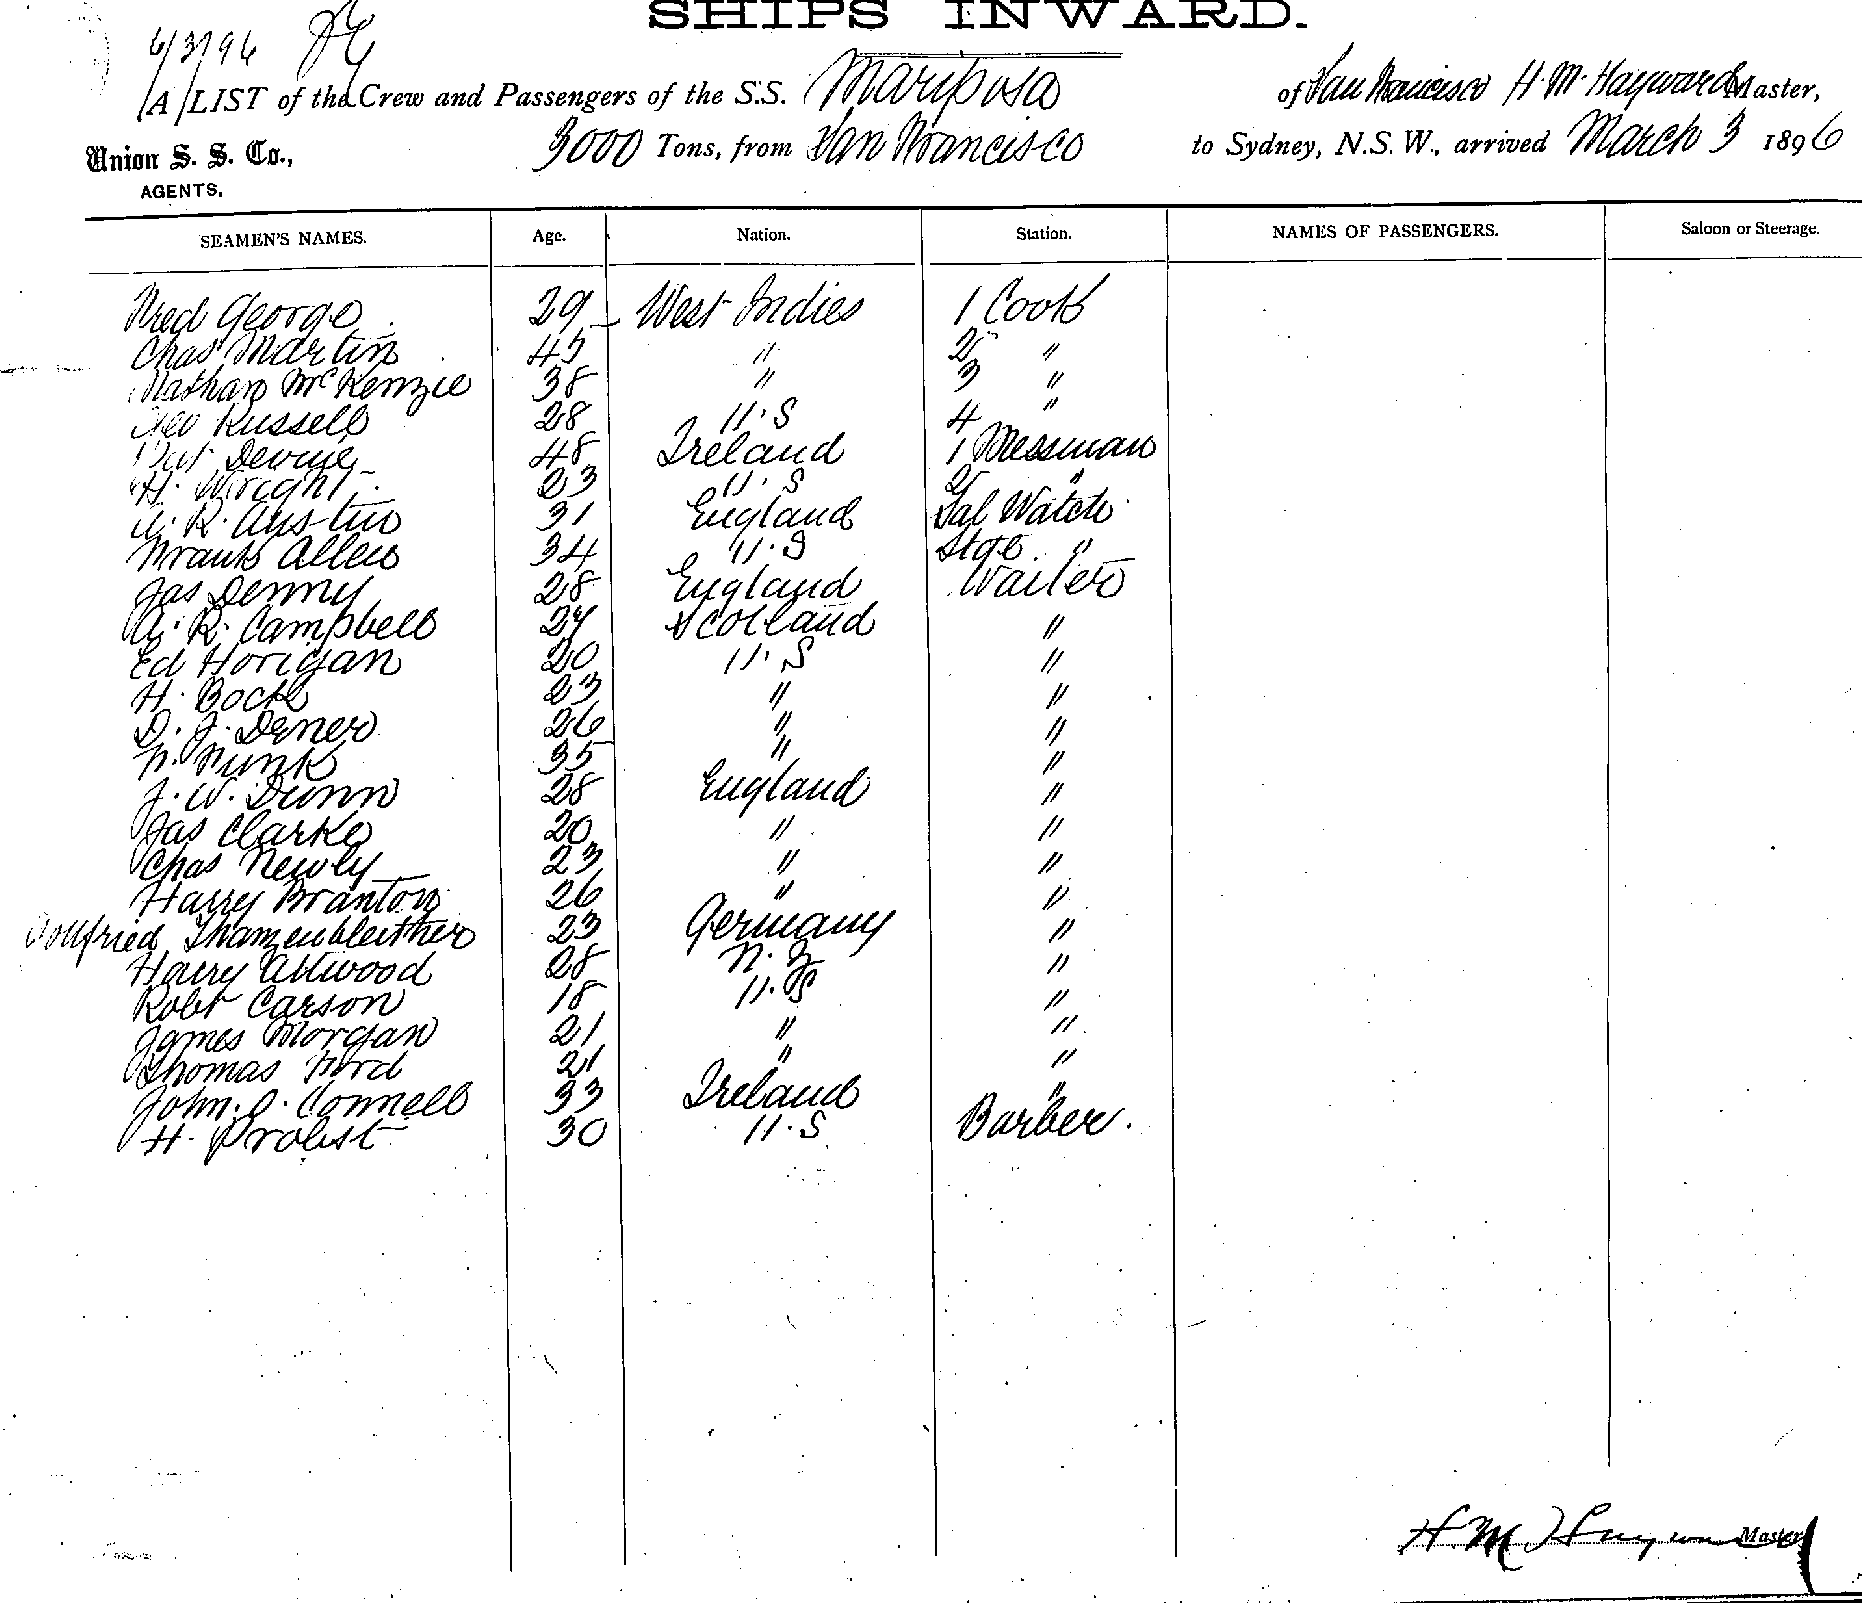 SHIPS INWARD.
6/3/96
A LIST of the Crew and Passengers of the S.S. Mariposa of San Francisco H. M. Hayward Master,
Union S. S. Co., AGENTS, 3000 Tons, from San Francisco to Sydney, N.S.W., arrived March 3 1896
SEAMEN'S NAMES. Age. Nation. Station. NAMES OF PASSENGERS. Saloon or Steerage.
Fred George 29 West Indies 1 Cook
Chas Martin 45 " 2 "
Nathan McKenzie 38 " 3 "
Geo Russell 28 U.S 4 "
Pat Devine 48 Ireland 1 Messman
H. Wright 23 U.S 2 "
A. R. Austin 31 England Sal Watch
Frank Allen 34 U.S Stge "
Jas Denny 28 England Waiter
A. R. Campbell 24 Scotland "
Ed Horigan 20 U.S "
H. Bock 23 " "
D. J. Dener 26 " "
F. Funk 35 " "
J. W. Dunn 28 England "
Jas Clarke 20 " "
Chas Newly 23 " "
Harry Branton 26 " "
Gottfried 23 Germany "
Harry Attwood 28 N.Z "
Robt Carson 18 U.S "
James Morgan 21 " "
Thomas Ford 21 " "
John O. Connell 33 Ireland "
H. Probst 30 U.S Barber.
H M Hayward Master